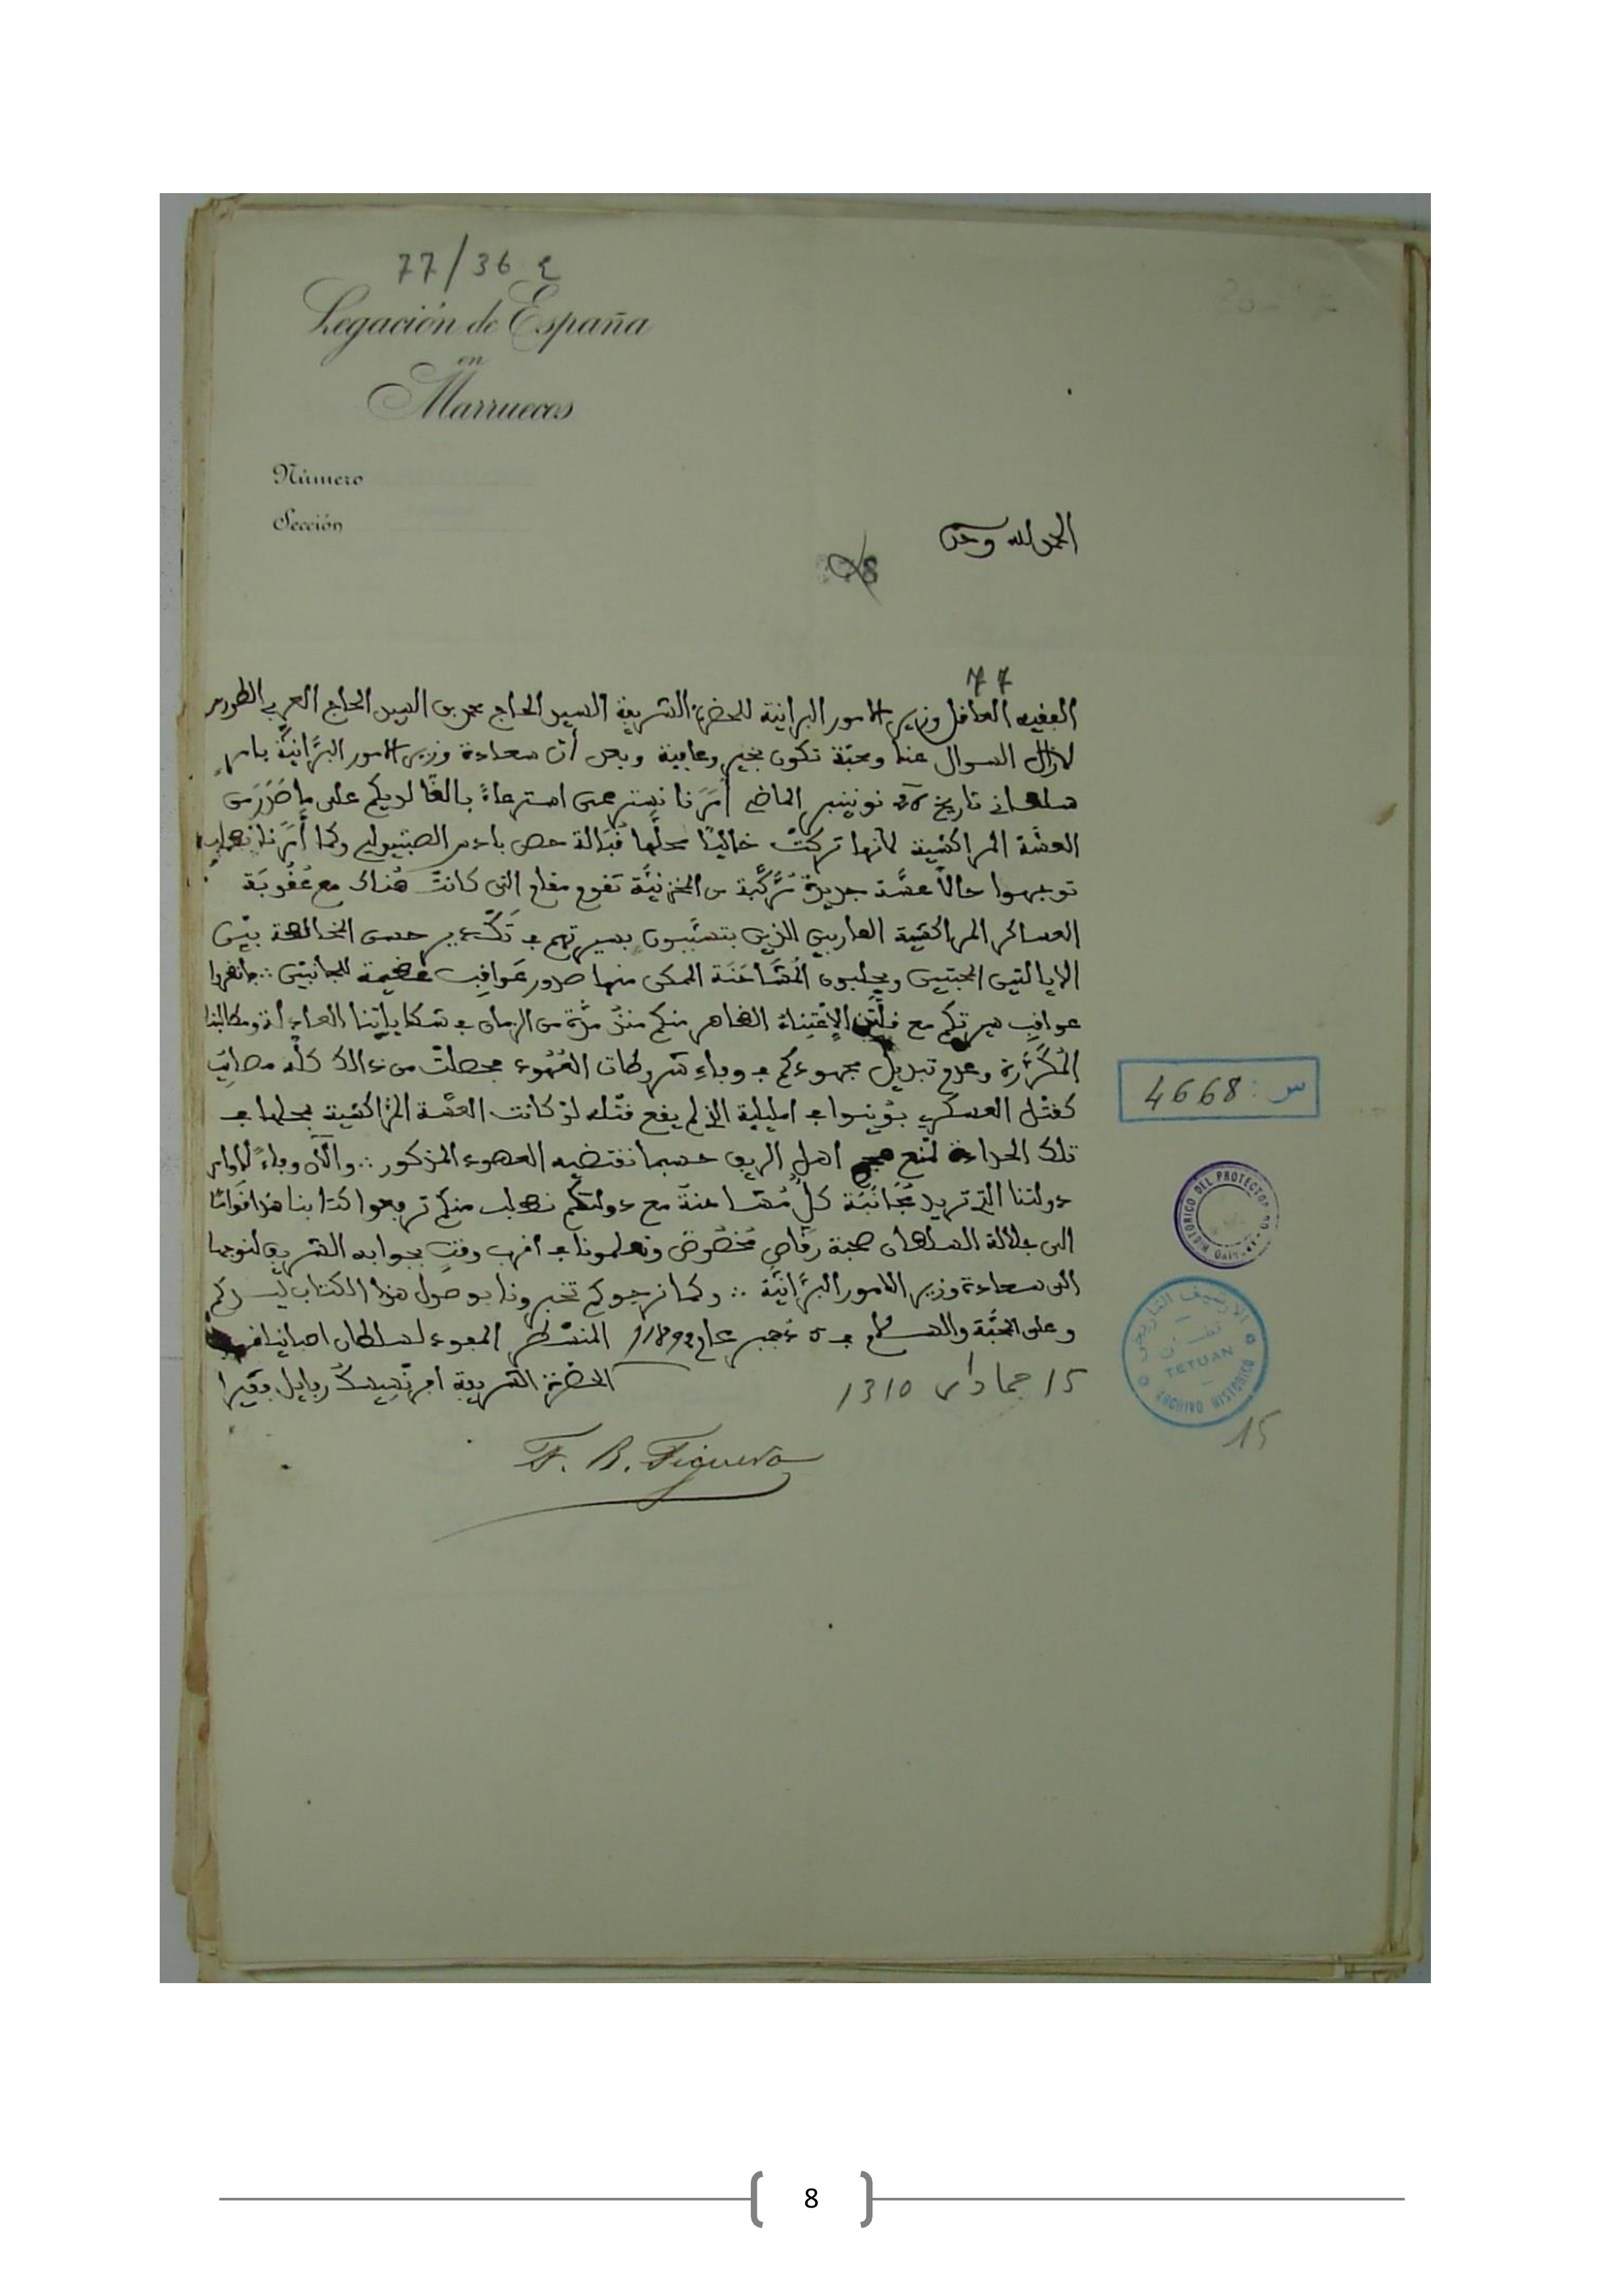 77/36 2
Legación de España
en
Marruecos
Número
Sección
الحمد لله وحده
77
الفقيه العاقل وزير الامور البرانية للحضرة الشريفة السيد الحاج محمد بن السيد الحاج العربي الطريس
لازال السوال عنا ومحبة تكون بخير وعافية وبعد أن سعادة وزير الامور البرّانيّة بامر
سلطاني تاريخ نونبر الماضي أمَرَنا نسترعى استرعاءً بالغًا لديكم على ما صَدَرَ من
العسّة المراكشية لانها تركتْ خاليًا محلّها قُبَالة حصن بادس الصبنيولي وكما أمَرَنا نطلب
توجهوا حالاً عسّة جديدة مُرَكّبة من المخزنيّة تقوم مقام التي كانتْ هُناك مع عُقُوبَة
العساكر المراكشية الهاربين الذين يتسبّبون بسيرتهم في تَكْدير حسن المخالطة بيْن
الايالتين المحبتين ويجلبون المُشَاحَنَة الممكن منها صدور عَواقِب عظيمة للجانبين ∴ فانظروا
عواقب سيرتكم مع قلّة الاعْتِناء الظاهر منكم منذُ مدّة من الزمان في شكاياتنا العادلة ومطالبنا
المُكَرَّرَة وعدم تبديل مجهودكم في وفاءِ شروطات العُهُود فحصلتْ من ذالك كلّه مصائب
كقتْل العسكري بوُينوا في امليلية الذي لم يقع قتْله لوْ كانت العسّة المرّاكشية بمحلها في
تلك الحدادة لمنع اهل الريف حسبما تقتضيه العهود المذكور ∴ والآن وفاءً لاوامر
دولتنا التي تريد مُجَانَبَة كلّ مُشاحنة مع دولتكم نطلب منكم ترفعوا كتابنا هذا قوامًا
الى جلالة السلطان صحبة رقّاص مَخْصُوص وتعلمونا في اقرب وقت بجوابه الشريف لنوجها
الى سعادة وزير الامور البرّانيّة ∴ وكما نرجوكم تخبرونا بوصول هذا الكتاب ليسركم
وعلى المحبّة والسلام في 5 دجنبر عام 1892 المنسْطر المفوء لسلطان اصبانيا في
15 جمادى 1310 الحضرة الشريفة افرنسيسكُ ربايل فقيرا
F. R. Figuera
س : 4668
ARCHIVO HISTORICO DEL PROTECTORADO
الارشيف التاريخي
تطوان
TETUAN
ARCHIVO HISTORICO
15
8